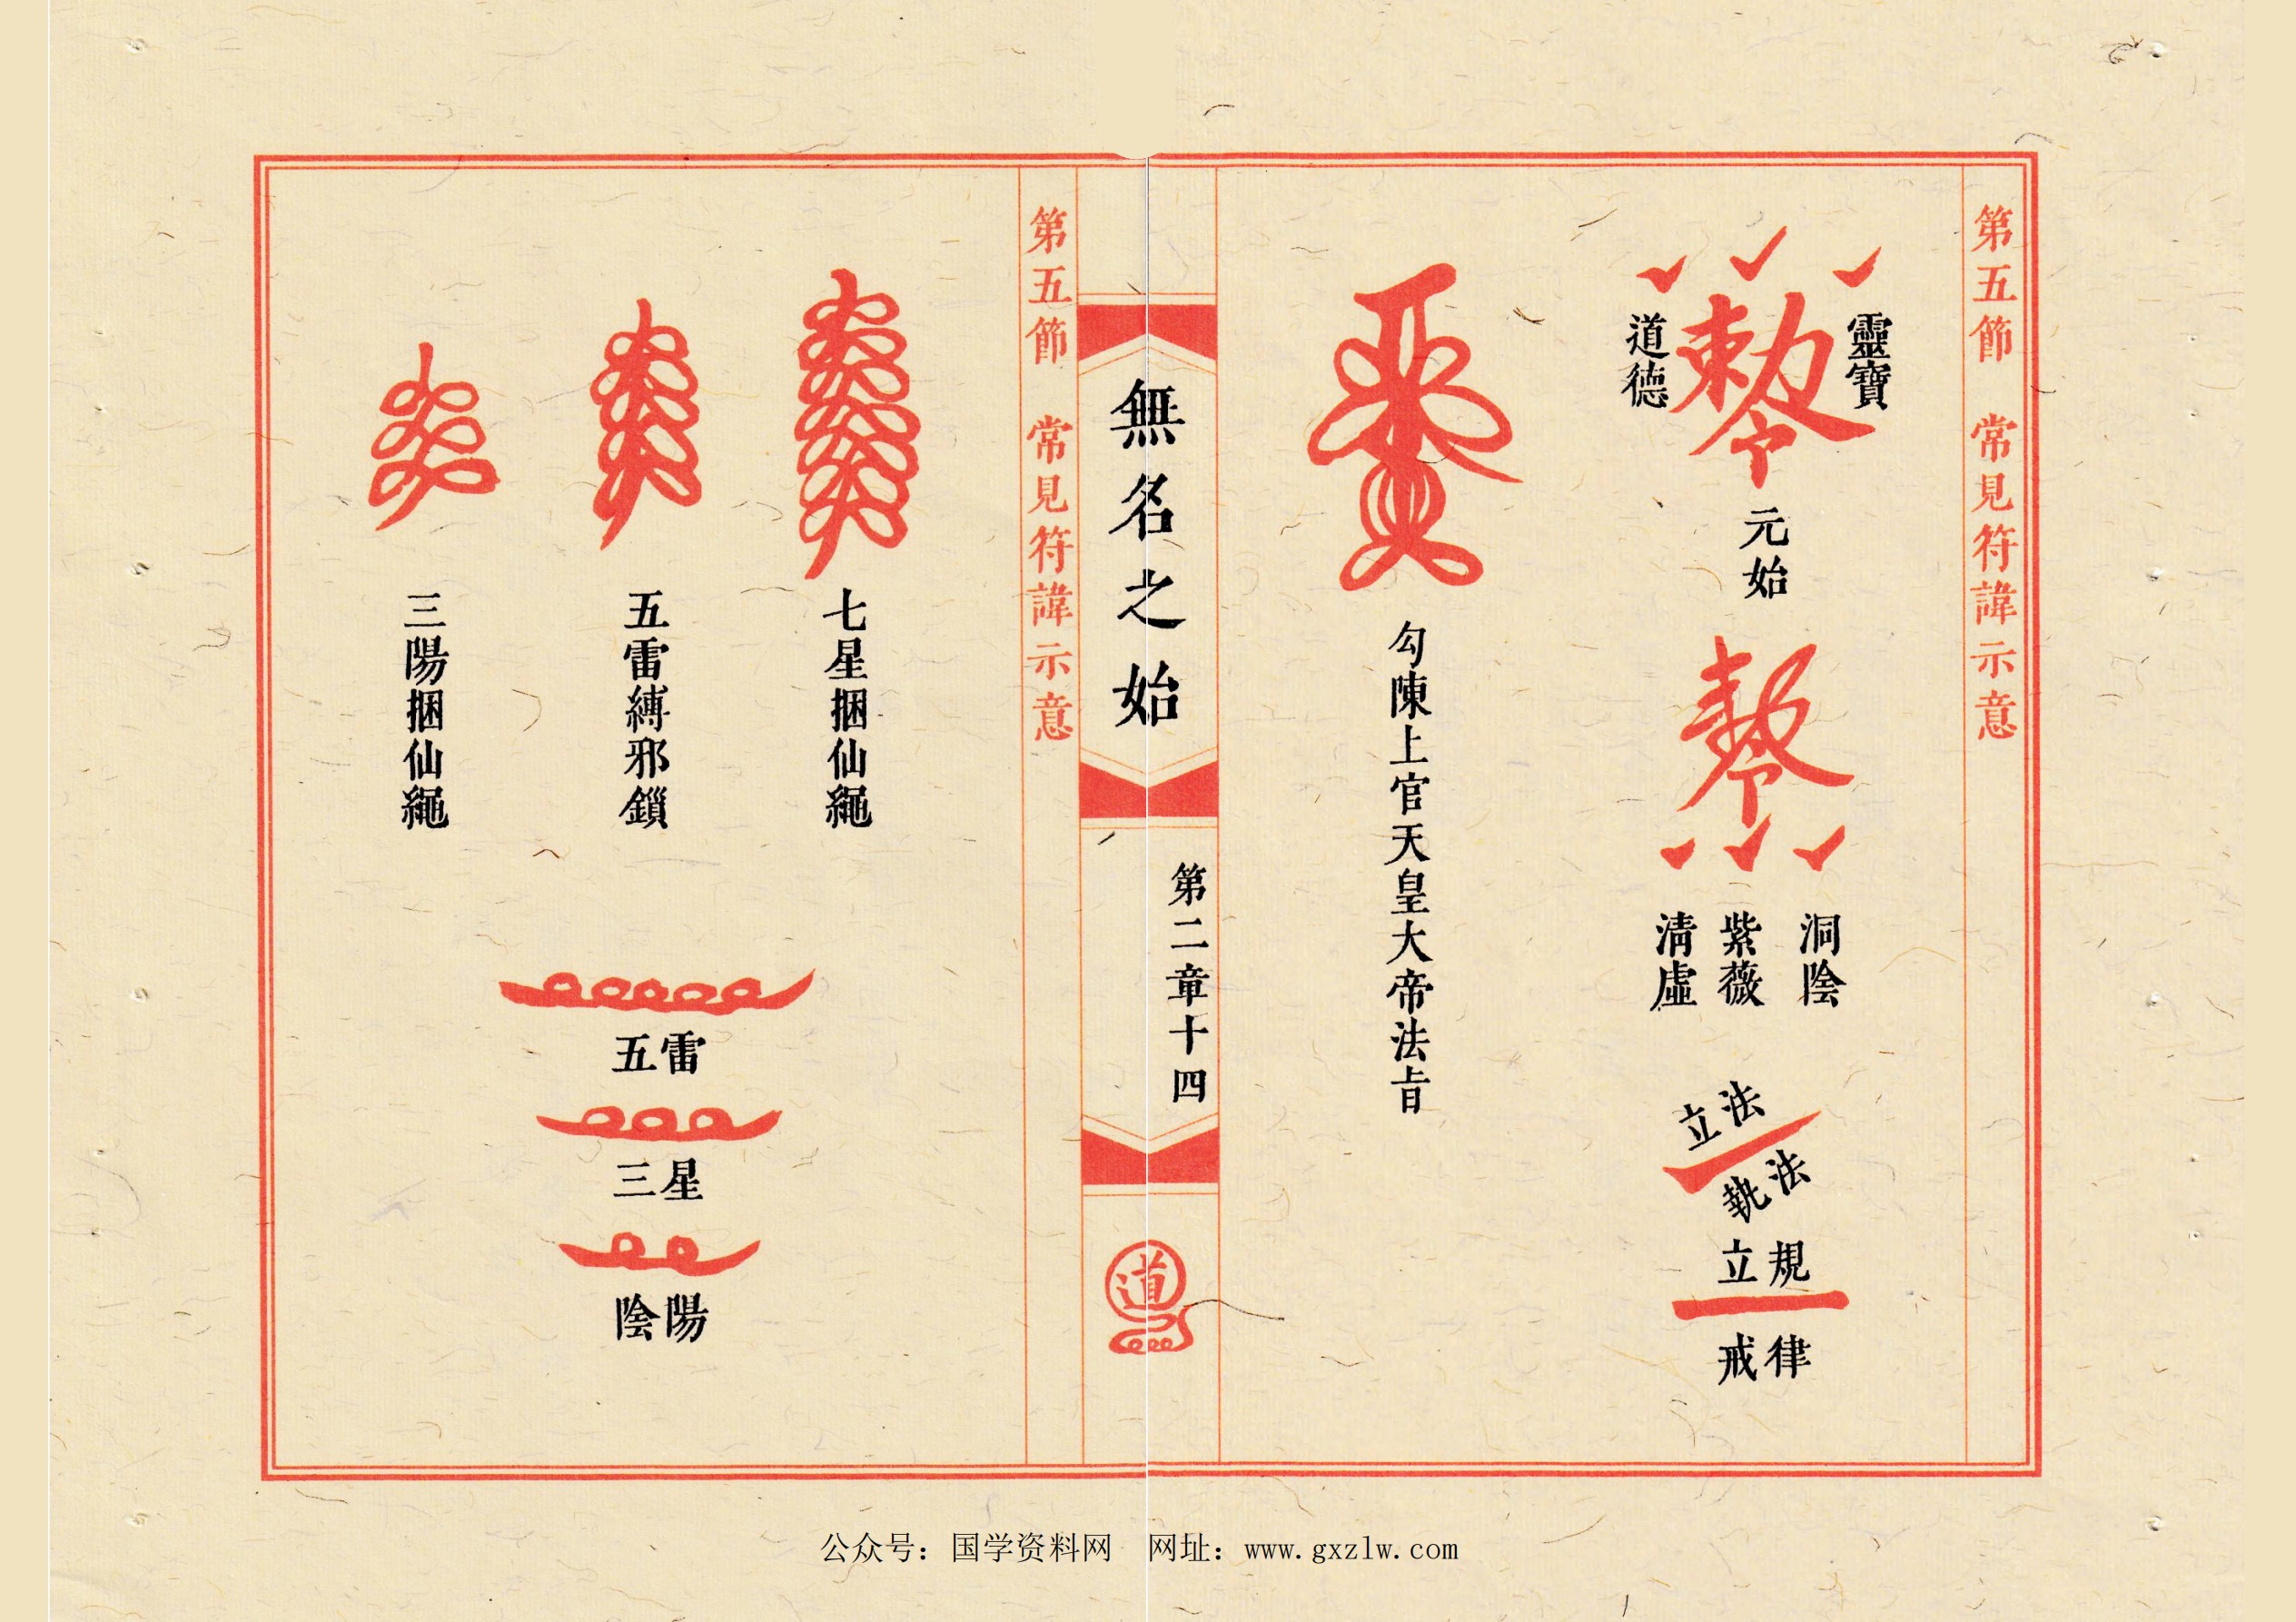 第五節 常見符諱示意
靈寶
敕令
道德
元始
敕令
洞陰
紫薇
清虛
立法
執法
立規
戒律
勾陳上官天皇大帝法旨
無名之始
第二章十四
道
第五節 常見符諱示意
七星捆仙繩
五雷縛邪鎖
三陽捆仙繩
五雷
三星
陰陽
公众号：国学资料网 网址：www.gxzlw.com